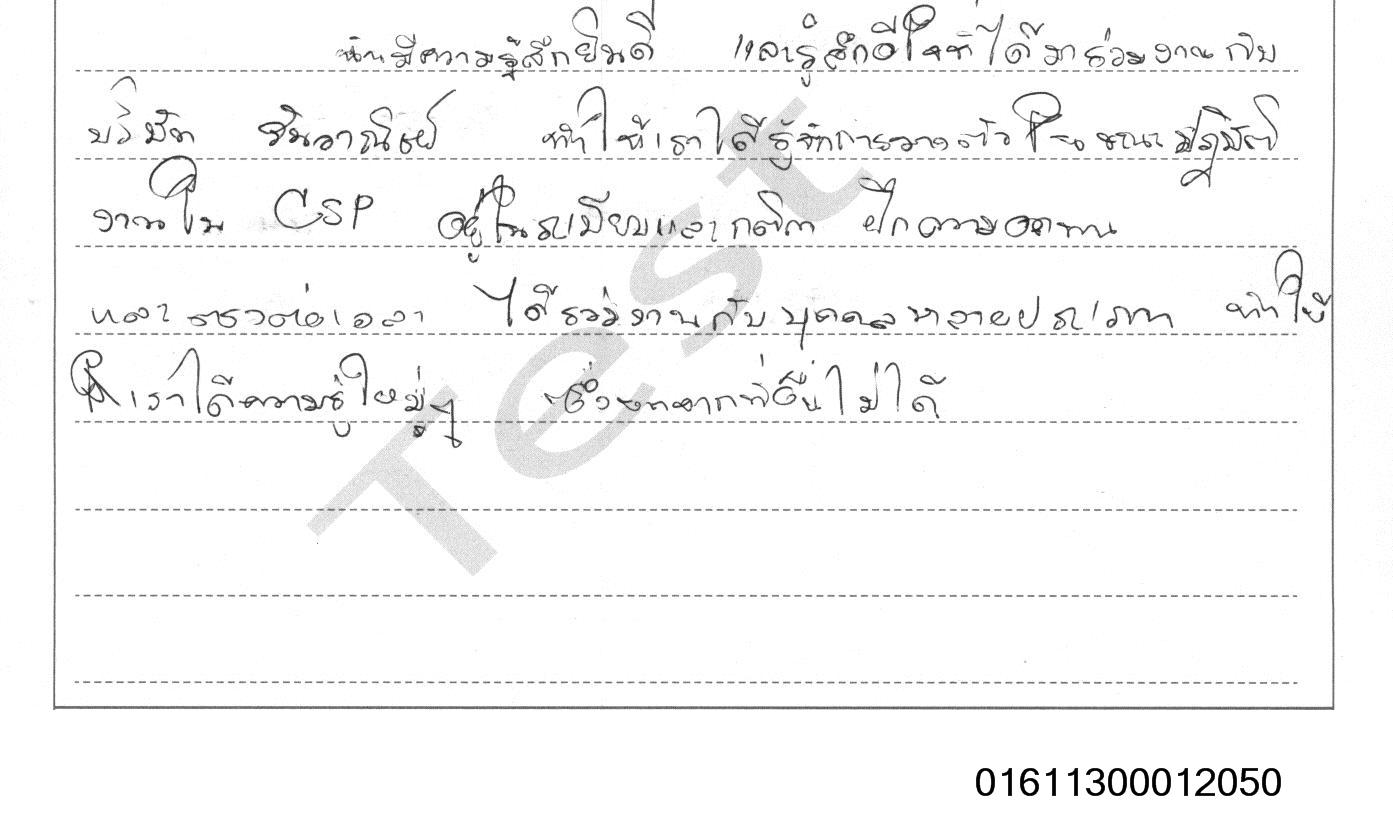 ฉันมีความรู้สึกยินดี และรู้สึกดีใจที่ได้มาร่วมงานกับ
บริษัท ทำให้เราได้รู้จักการวางตัวในขณะปฏิบัติ
งานใน CSP อยู่ในระเบียบและกติกา ฝึกความอดทน
และตรงต่อเวลา ได้ร่วมงานกับบุคคลหลายประเภท ทำให้
เราได้ความรู้ใหม่ๆ ซึ่งหาจากที่อื่นไม่ได้
Test
01611300012050